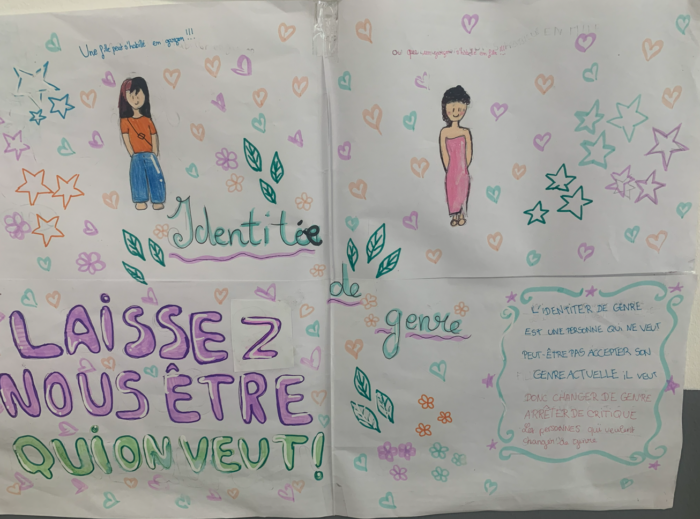 Une fille peut s'habillé en garçon !!!
ou que un garçon s'habille en fille !!!
Identitée
de
genre
LAISSEZ
NOUS ÊTRE
QUI ON VEUT !
L'IDENTITER DE GENRE
EST UNE PERSONNE QUI NE VEUT
PEUT-ÊTRE PAS ACCEPTER SON
GENRE ACTUELLE IL VEUT
DONC CHANGER DE GENRE
ARRÊTER DE CRITIQUE
les personnes qui veulent
changer de genre